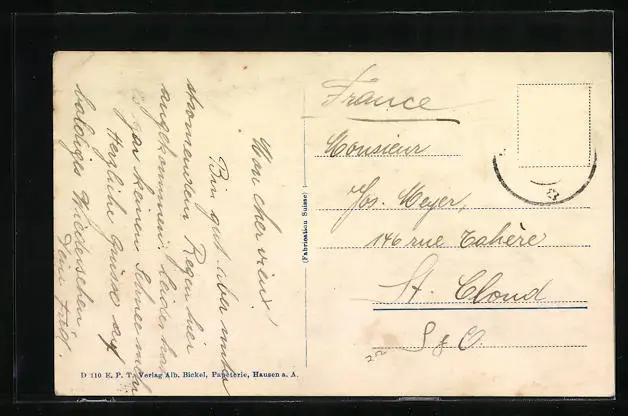 Mon cher vieux!
Bin gut aber unter
strömendem Regen hier
angekommen; leider hat
es gar keinen Schnee mehr
Herzliche Grüsse auf
baldiges Wiedersehen
Dein
France
Monsieur
Jos. Meyer,
146 rue Tahère
St. Cloud
S & O.
22
(Fabrication Suisse)
D 110 E. P. T. Verlag Alb. Bickel, Papeterie, Hausen a. A.